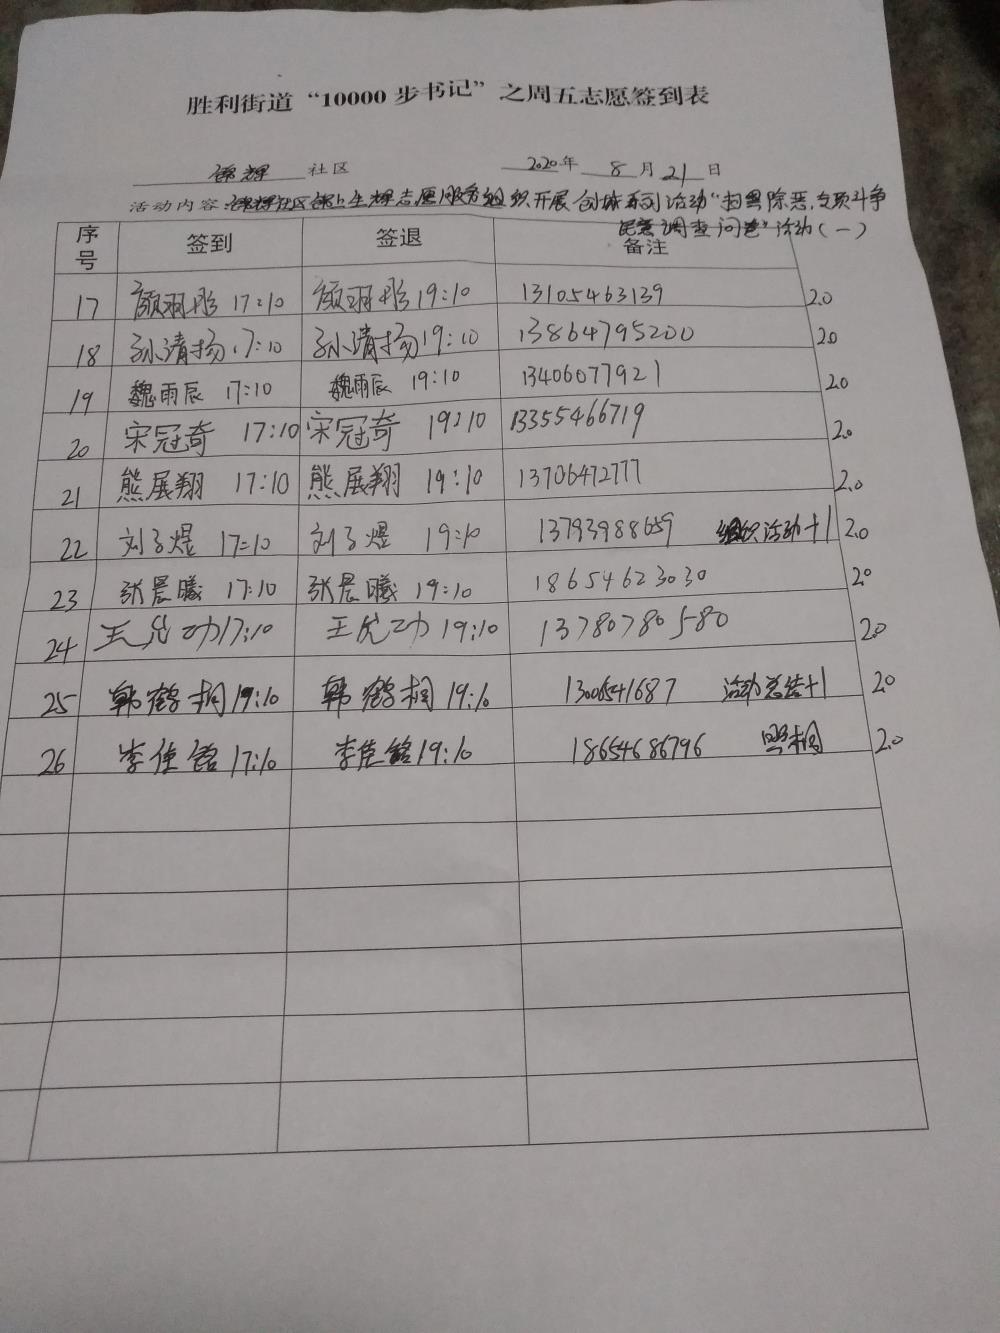 胜利街道“10000步书记”之周五志愿签到表
锦辉 社区 2020年 8月21日
活动内容:锦辉社区锦上生辉志愿服务组织开展创城系列活动“扫黑除恶,专项斗争
民意调查问卷”活动(一)
序号 签到 签退 备注
17 颜羽彤 17:10 颜羽彤 19:10 13105463139 2.0
18 孙清扬 17:10 孙清扬 19:10 13864795200 2.0
19 魏雨辰 17:10 魏雨辰 19:10 13406077921 2.0
20 宋冠奇 17:10 宋冠奇 19:10 13355466719 2.0
21 熊展翔 17:10 熊展翔 19:10 13706472777 2.0
22 刘子煜 17:10 刘子煜 19:10 组织活动+1 2.0
23 张晨曦 17:10 张晨曦 19:10 18654623030 2.0
24 17:10 19:10 13780780580 2.0
25 韩鹤桐 19:10 韩鹤桐 19:10 活动总结+1 2.0
26 李佳铭 17:10 李佳铭 19:10 18654686796 照相 2.0